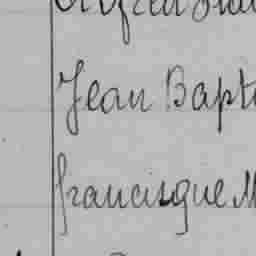 Jean Bapt
francisque M